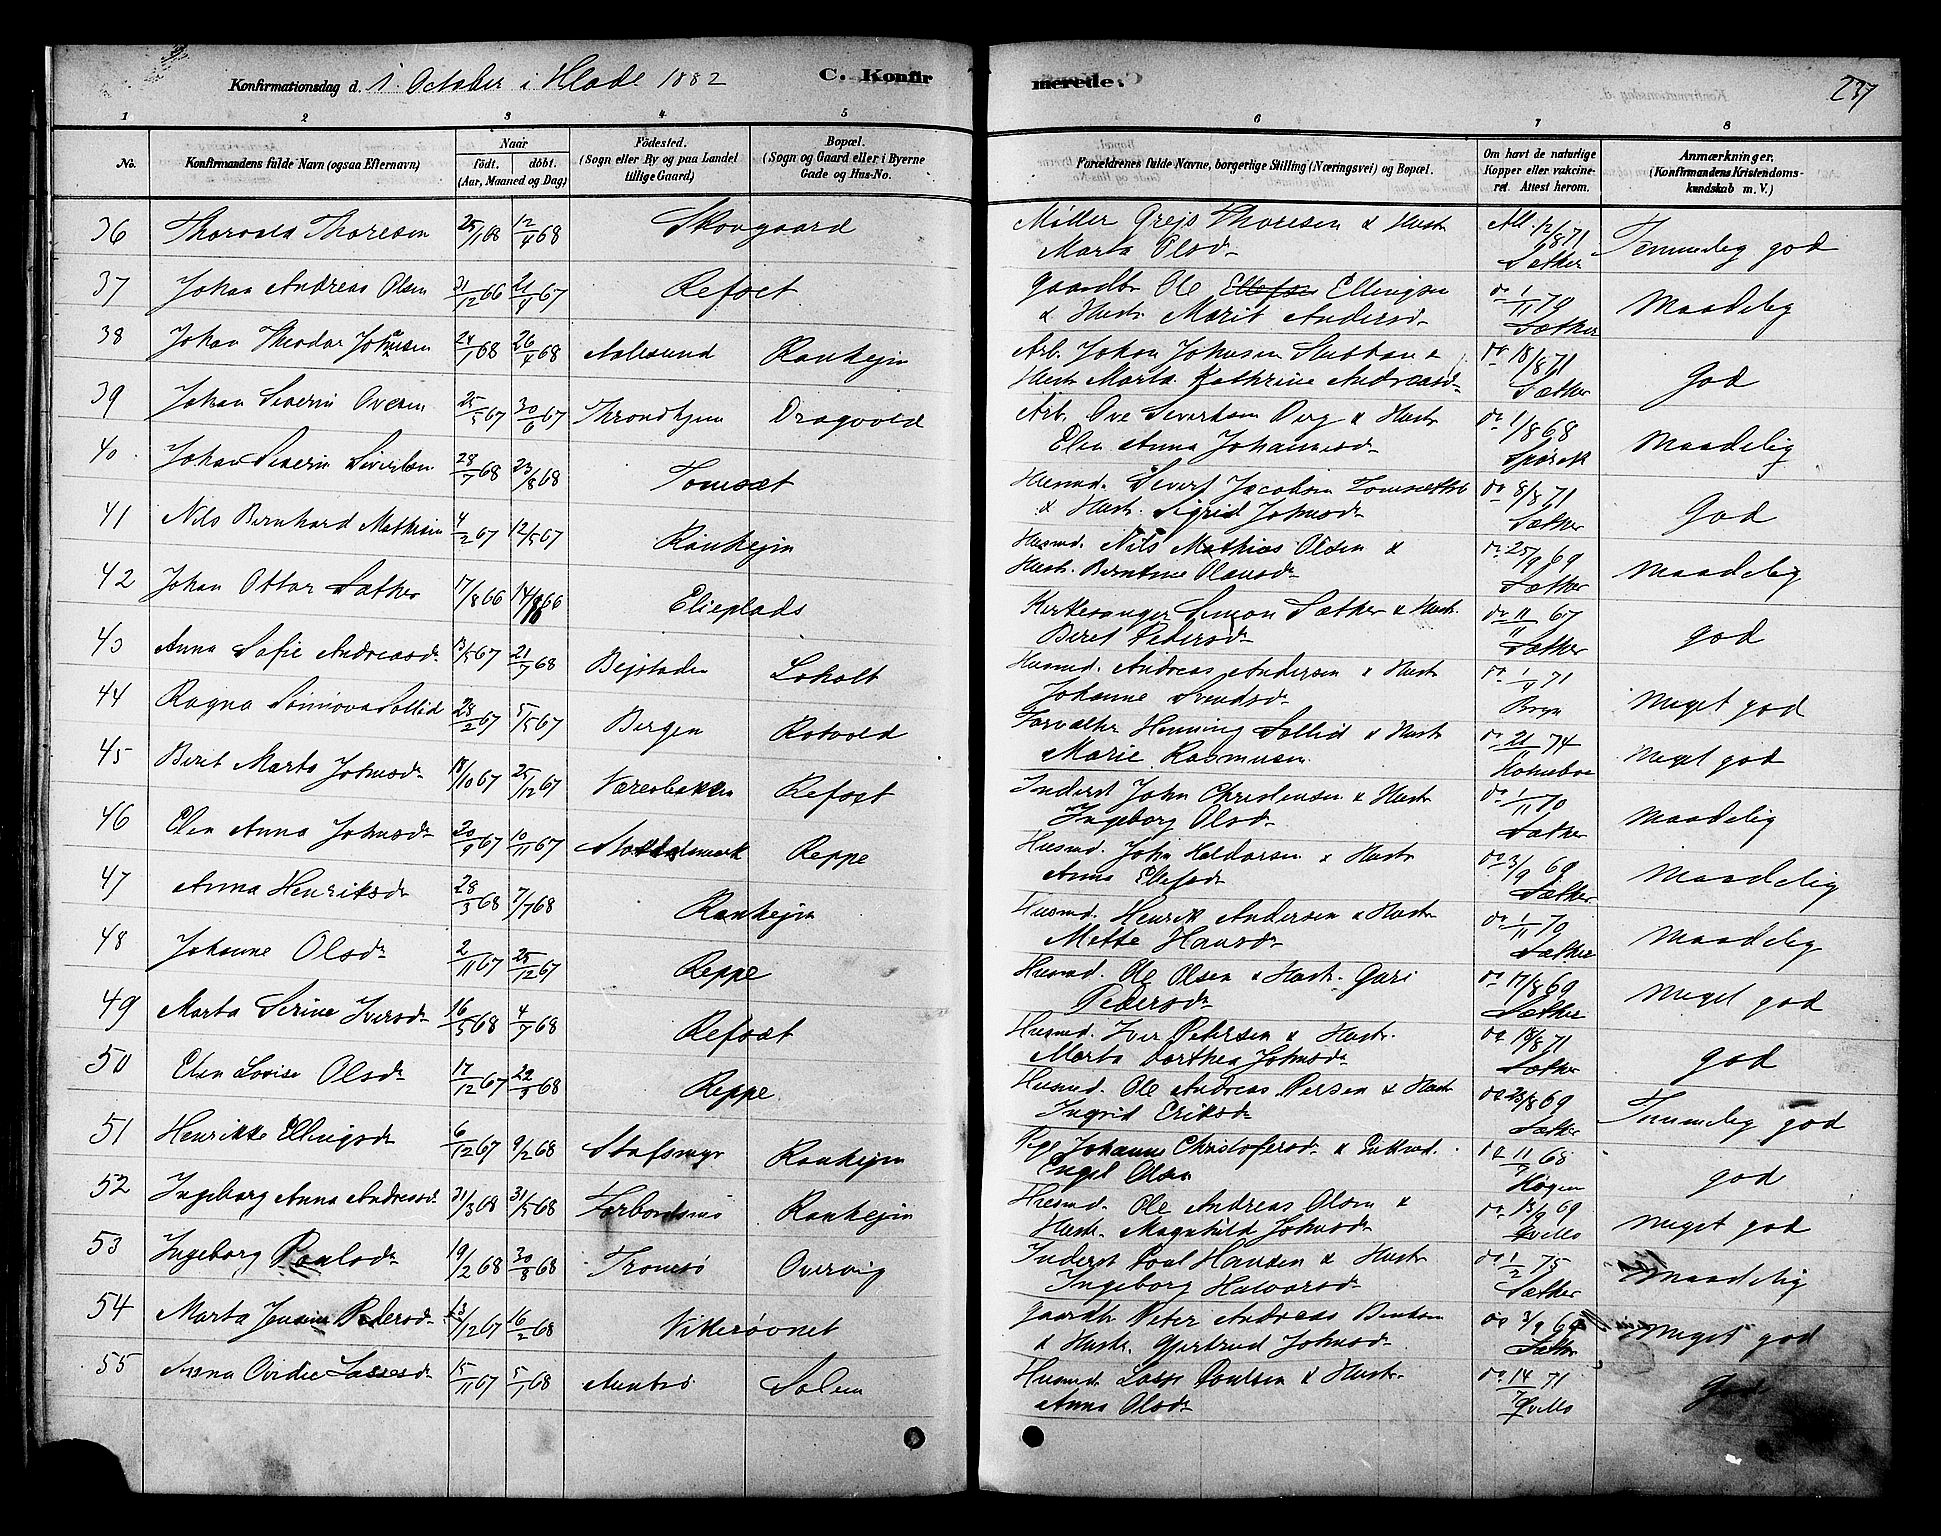 Konfirmationsdag d. 1. October i Hlade 1882 C. Konfirmerede. 237
1 2 3 4 5 6 7 8
No. Konfirmandens fulde Navn (ogsaa Efternavn) Naar født. døbt. (Aar, Maaned og Dag) Fødested. (Sogn eller By og paa Landet tillige Gaard) Bopæl. (Sogn og Gaard eller i Byerne Gade og Hus-No. Forældrenes fulde Navne, borgerlige Stilling (Næringsvei) og Bopæl. Om havt de naturlige Kopper eller vakcineret. Attest herom. Anmærkninger. (Konfirmandens Kristendomskundskab m. V.)
36 Thorvald Thoresen 25/1 68 12/4 68 Skovgaard Møller Grejs Thoresen & Hustr. Att. 12/8 71 Temmelig god
Marta Olsd. Sæther
37 Johan Andreas Olsen 31/12 66 21/4 67 Refset Gaardbr. Ole Ellefsen Ellingsen do 1/11 70 Maadelig
& Hustr. Marit Andersd. Sæther
38 Johan Theodor Johnsen 24/1 68 26/4 68 Aalesund Ranhejm Arb. Johan Johnsen & do 18/8 71 God
Hustr. Marta Kathrine Andreasd. Sæther
39 Johan Severin Ovesen 25/5 67 30/6 67 Throndhjem Dragvold Arb. Ove Sivertsen Berg & Hustr. do 1/8 68 Maadelig
Elen Anna Johannesd.
40 Johan Severin Sivertsen 28/7 68 23/8 68 Tomset Husmd. Sivert Jacobsen & Hustr. Sigrid Johnsd. do 8/8 71 God
Sæther
41 Nils Bernhard Mathisen 4/2 67 12/5 67 Ranhejm Husmd. Nils Mathias Olsen & do 25/9 69 Maadelig
Hustr. Berntine Olausd. Sæther
42 Johan Ottar Sæther 17/8 66 Elieplads Kirkesanger Simon Sæther & Hustr. do 11/11 67 god
Beret Pedersd. Sæther
43 Anna Sofie Andreasd. 13/5 67 21/7 68 Bejstaden Loholt Husmd. Andreas Andersen & Hustr. do 71 Meget god
Johanne Svendsd.
44 Ragna Sønnøva Sollid 23/2 67 5/5 67 Bergen Rotvold Forvalter Henning Sollid & Hustr. do 21 74 Meget god
Marie Rasmusen
45 Beret Marta Johnsd. 18/10 67 25/12 67 Væresbakken Refset Inderst John Christensen & Hustr. do 1/11 70 Maadelig
Ingeborg Olsd. Sæther
46 Elen Anna Johnsd. 20/9 67 10/11 67 Reppe Husmd. John Haldorsen & Hustr. do 3/9 69 Maadelig
Anna Ellefsd. Sæther
47 Anna Henriksd. 28/3 68 7/7 68 Ranhejm Husmd. Henrik Andersen & Hustr. do 1/11 70 Maadelig
Mette Hansd. Sæther
48 Johanne Olsd. 2/11 67 25/12 67 Reppe Husmd. Ole Olsen & Hustr. Guri do 17/8 69 Meget god
Pedersd. Sæther
49 Marta Serine Iversd. 16/5 68 4/7 68 Refset Husmd. Iver Petersen & Hustr. do 18/8 71 god
Marta Dorthea Johnsd. Sæther
50 Elen Lovise Olsd. 17/12 67 22/3 68 Reppe Husmd. Ole Andreas Persen & Hustr. do 23/8 69 Temmelig god
Ingrid Eriksd. Sæther
51 Henrikke Ellingsd. 6/12 67 9/2 68 Ranhejm Pige Johanna Christofersd. & do 11 68 god
Engel Olsen
52 Ingeborg Anna Andreasd. 31/3 68 31/5 68 Ranhejm Husmd. Ole Andreas Olsen & do 13/9 69 Meget god
Hustr. Magnhild Johnsd. Qvello
53 Ingeborg Paulsd. 19/2 68 30/8 68 Tromsø Overvig Inderst Poul Hansen & Hustr. do 1/2 75 Maadelig
Ingeborg Halvorsd. Sæther
54 Marta Jensine Pedersd. 13/12 67 16/2 68 Vikerøvnet Gaardb. Peter Andreas & Hustr. Gjertrud Johnsd. do 3/9 69 Meget god
Sæther
55 Anna Ovidie Lassesd. 15/11 67 5/1 68 Solem Husmd. Lasse Poulsen & Hustr. do 14/7 71 God
Anna Olsd. Qvello